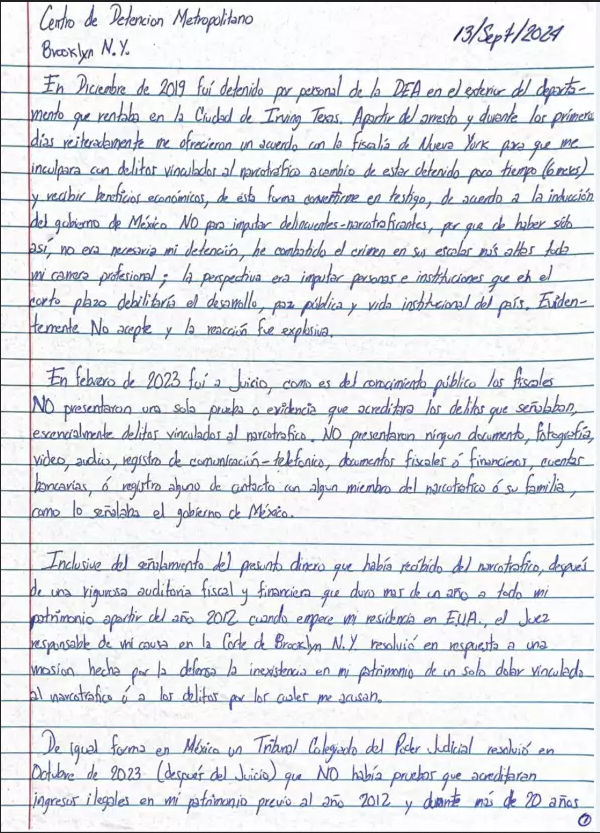 Centro de Detencion Metropolitano
Brooklyn N.Y.
13/Sept/2024
En Diciembre de 2019 fuí detenido por personal de la DEA en el exterior del departa-
mento que rentaba en la Ciudad de Irving Texas. Apartir del arresto y durante los primeros
días reiteradamente me ofrecieron un acuerdo con la fiscalía de Nueva York para que me
inculpara con delitos vinculados al narcotráfico acambio de estar detenido poco tiempo (6 meses)
y recibir beneficios económicos, de esta forma convertirme en testigo, de acuerdo a la inducción
del gobierno de México NO para imputar delincuentes-narcotraficantes, por que de haber sido
así, no era necesaria mi detención, he combatido el crimen en sus escalas más altas toda
mi carrera profesional; la perspectiva era imputar personas e instituciones que en el
corto plazo debilitaría el desarrollo, paz pública y vida institucional del país. Eviden-
temente No acepte y la reacción fue explosiva.
En febrero de 2023 fuí a Juicio, como es del conocimiento público los fiscales
NO presentaron una sola prueba o evidencia que acreditara los delitos que señalaban,
escencialmente delitos vinculados al narcotrafico. NO presentaron ningun documento, fotografía,
video, audio, registro de comunicación-telefonico, documentos fiscales ó financieros, cuentas
bancarias, ó registro alguno de contacto con algun miembro del narcotrafico ó su familia,
como lo señalaba el gobierno de México.
Inclusive del señalamiento del presunto dinero que había recibido del narcotrafico, después
de una rigurosa auditoria fiscal y financiera que duro mas de un año a todo mi
patrimonio apartir del año 2012 cuando empece mi residencia en EUA., el Juez
responsable de mi causa en la Corte de Brooklyn N.Y. resolvió en respuesta a una
mosion hecha por la defensa la inexistencia en mi patrimonio de un solo dolar vinculado
al narcotrafico ó a los delitos por los cuales me acusan.
De igual forma en México un Tribunal Colegiado del Poder Judicial resolvió en
Octubre de 2023 (después del Juicio) que NO había pruebas que acreditaran
ingresos ilegales en mi patrimonio previo al año 2012 y durante más de 20 años
1